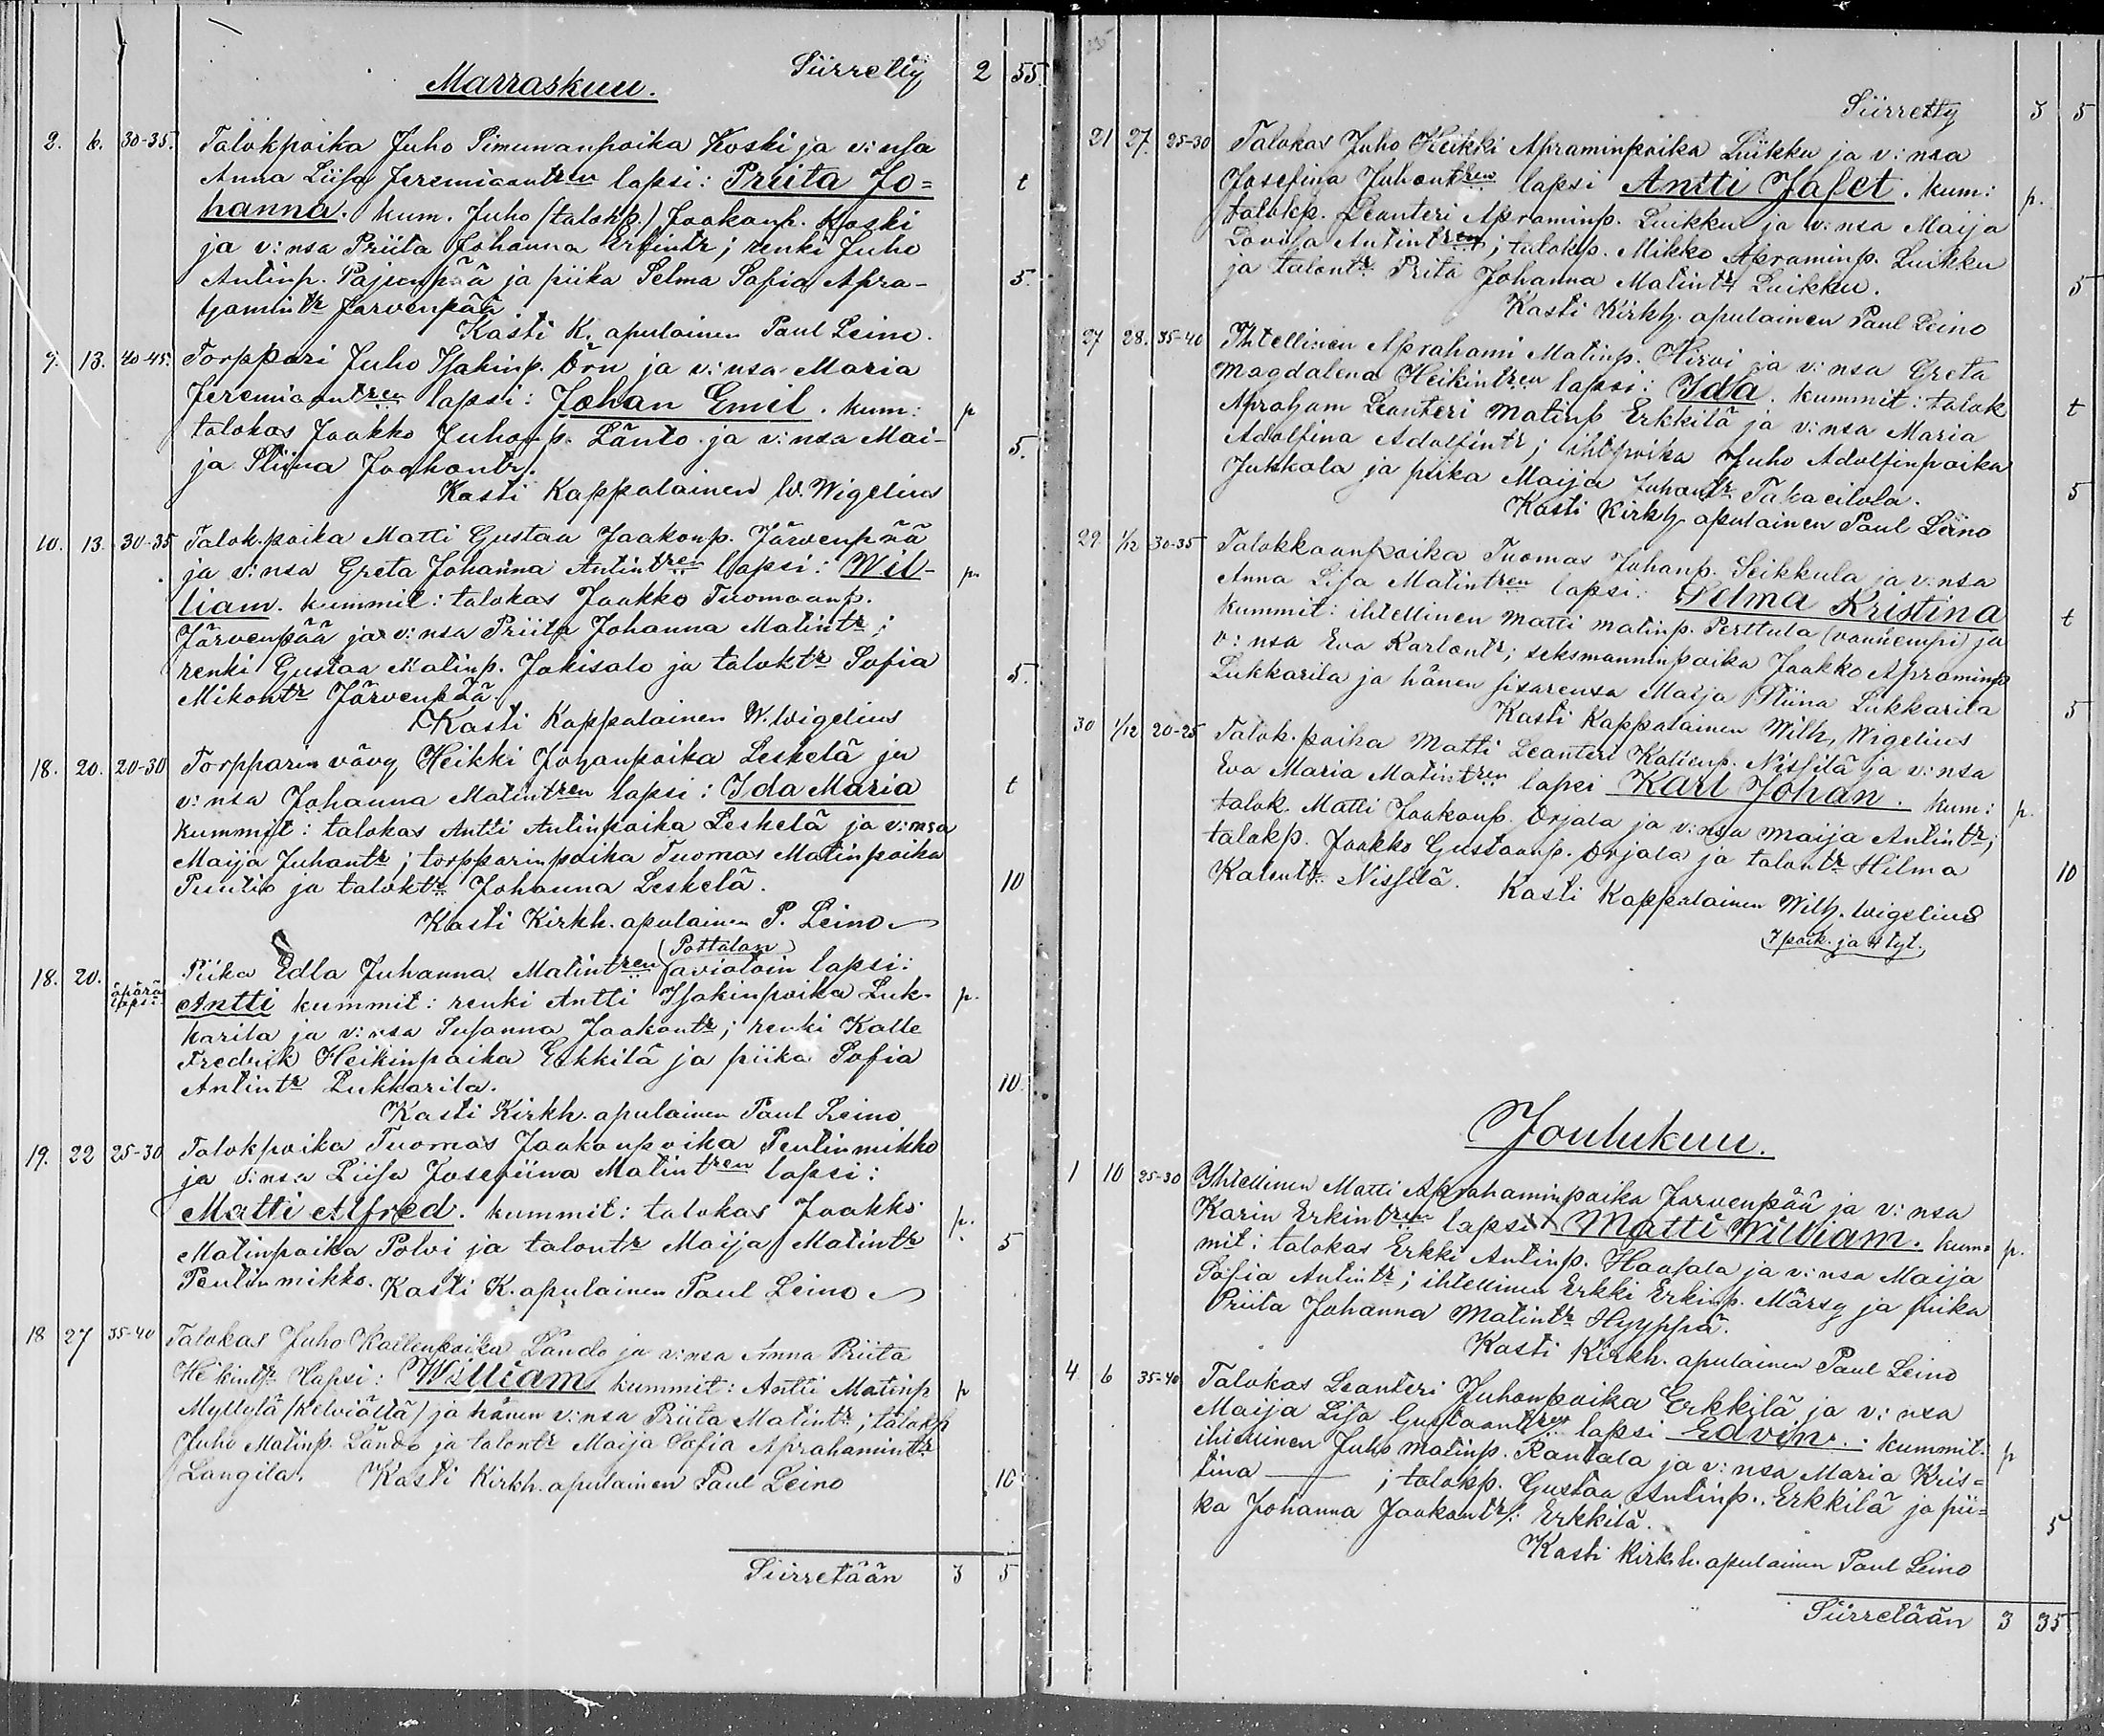 Siirretty 2 55.
Marraskuu.
2. 6. 30-35. Talokpoika Juho Simunanpoika Koski ja v:nsa
Anna Liisa Jeremiaantren lapsi: Priita Jo= t
hanna. kum. Juho (talokp.) Jaakonp. Koski
ja v:nsa Priita Johanna Erkintr; renki Juho
Antinp. Pajunpää ja piika Selma Sofia Apra- 5.
hamintr Järvenpää
Kasti K. apulainen Paul Leino.
9. 13. 40-45. Torppari Juho Isakinp. Örn ja v:nsa Maria
Jeremiantren lapsi: Johan Emil. kum: p
talokas Jaakko Juhonp. Länto ja v:nsa Mai- 5.
ja Stiina Jaakontr.
Kasti Kappalainen W. Wigelius
10. 13. 30-35 Talok.poika Matti Gustaa Jaakonp. Järvenpää
ja v:nsa Greta Johanna Antintren lapsi: Wil- p.
liam. kummit: talokas Jaakko Tuomaanp.
Järvenpää ja v:nsa Priita Johanna Matintr;
renki Gustaa Matinp. Jokisalo ja taloktr Sofia 5.
Mikontr Järvenpää.
Kasti Kappalainen W. Wigelius
18. 20. 20-30 Torpparin vävy Heikki Johanpoika Leskelä ja
v:nsa Johanna Matintren lapsi: Ida Maria t
kummit: talokas Antti Antinpoika Leskelä ja v:nsa
Maija Juhantr; torpparinpoika Tuomas Matinpoika
Puutio ja taloktr Johanna Leskelä. 10
Kasti Kirkh. apulainen P. Leino
(Pottalan)
18. 20. äpärä lapsi: Piika Edla Juhanna Matintren aviotoin lapsi:
Antti kummit: renki Antti Isakinpoika Luk- p.
karila ja v:nsa Susanna Jaakontr; renki Kalle
Fredrik Heikinpoika Erkkilä ja piika Sofia
Antintr Lukkarila. 10.
Kasti Kirkh. apulainen Paul Leino
19. 22 25-30 Talokpoika Tuomas Jaakonpoika Pentinmikko
ja v:nsa Liisa Josefiina Matintren lapsi:
Matti Alfred. kummit: talokas Jaakko p.
Matinpoika Polvi ja talontr Maija Matintr 5
Pentinmikko. Kasti K. apulainen Paul Leino
18 27 35-40 Talokas Juho Kallenpoika Ländo ja v:nsa Anna Priita
Heikintr lapsi: William kummit: Antti Matinp p
Myllylä (Kelviältä) ja hänen v:nsa Priita Matintr; talokp
Juho Matinp. Ländo ja talontr Maija Sofia Aprahamintr
Langila. Kasti Kirkh. apulainen Paul Leino 10
Siirretään 3 5
Siirretty 3 5
21 27. 25-30 Talokas Juho Heikki Apraminpoika Luikku ja v:nsa
Josefina Juhontren lapsi Antti Jafet. kum: p.
talokp. Leanteri Apraminp. Luikku ja v:nsa Maija
Lovisa Antintren; talokp. Mikko Apraminp. Luikku
ja talontr. Prita Johanna Matintr Luikku. 5
Kasti Kirkh. apulainen Paul Leino
27 28. 35-40 Ihtellinen Aprahami Matinp. Hirvi ja v:nsa Greta
Magdalena Heikintren lapsi: Ida. kummit: talok t
Apraham Leanteri Matinp Erkkilä ja v:nsa Maria
Adolfina Adolfintr; ihtpoika Juho Adolfinpoika
Jutskola ja piika Maija Juhontr Takaeilola. 5
Kasti Kirkh apulainen Paul Leino
29 1/12 30-35 Talokkaanpoika Tuomas Johanp. Seikkula ja v:nsa
Anna Lisa Matintren lapsi: Selma Kristina
kummit: ihtellinen Matti Matinp. Perttula (vanhempi) ja t
v:nsa Eva Karlontr; seksmanninpoika Jaakko Apraminp
Lukkarila ja hänen sisarensa Maija Stiina Lukkarila 5
Kasti Kappalainen Wilh. Wigelius
30 1/12 20-25 Talok.poika Matti Leanteri Kallenp. Nissilä ja v:nsa
Eva Maria Matintren lapsi Karl Johan. kum: p.
talok. Matti Jaakonp. Orjala ja v:nsa Maija Antintr;
talokp. Jaakko Gustaanp. Orjala ja talontr Hilma
Kalentr. Nissilä. 10
Kasti Kappalainen Wilh. Wigelius
7 poik. ja 4 tyt.
Joulukuu.
1 10 25-30 Ihtellinen Matti Aprahaminpoika Järvenpää ja v:nsa
Karin Erkintren lapsi Matti William. kum= p.
mit: talokas Erkki Antinp. Haapala ja v:nsa Maija
Sofia Antintr; ihtellinen Erkki Erkinp. Märsy ja piika
Priita Johanna Matintr Hyyppä.
Kasti Kirkh. apulainen Paul Leino
4 6 35-40 Talokas Leanteri Juhonpoika Erkkilä ja v:nsa
Maija Lisa Gustaantren lapsi Edvin.: kummit. p
ihtellinen Juho Matinp. Rantala ja v:nsa Maria Kris=
tina ; talokp. Gustaa Antinp. Erkkilä ja pii=
ka Johanna Jaakontr: Erkkilä. 5
Kasti Kirkh. apulainen Paul Leino
Siirretään 3 35